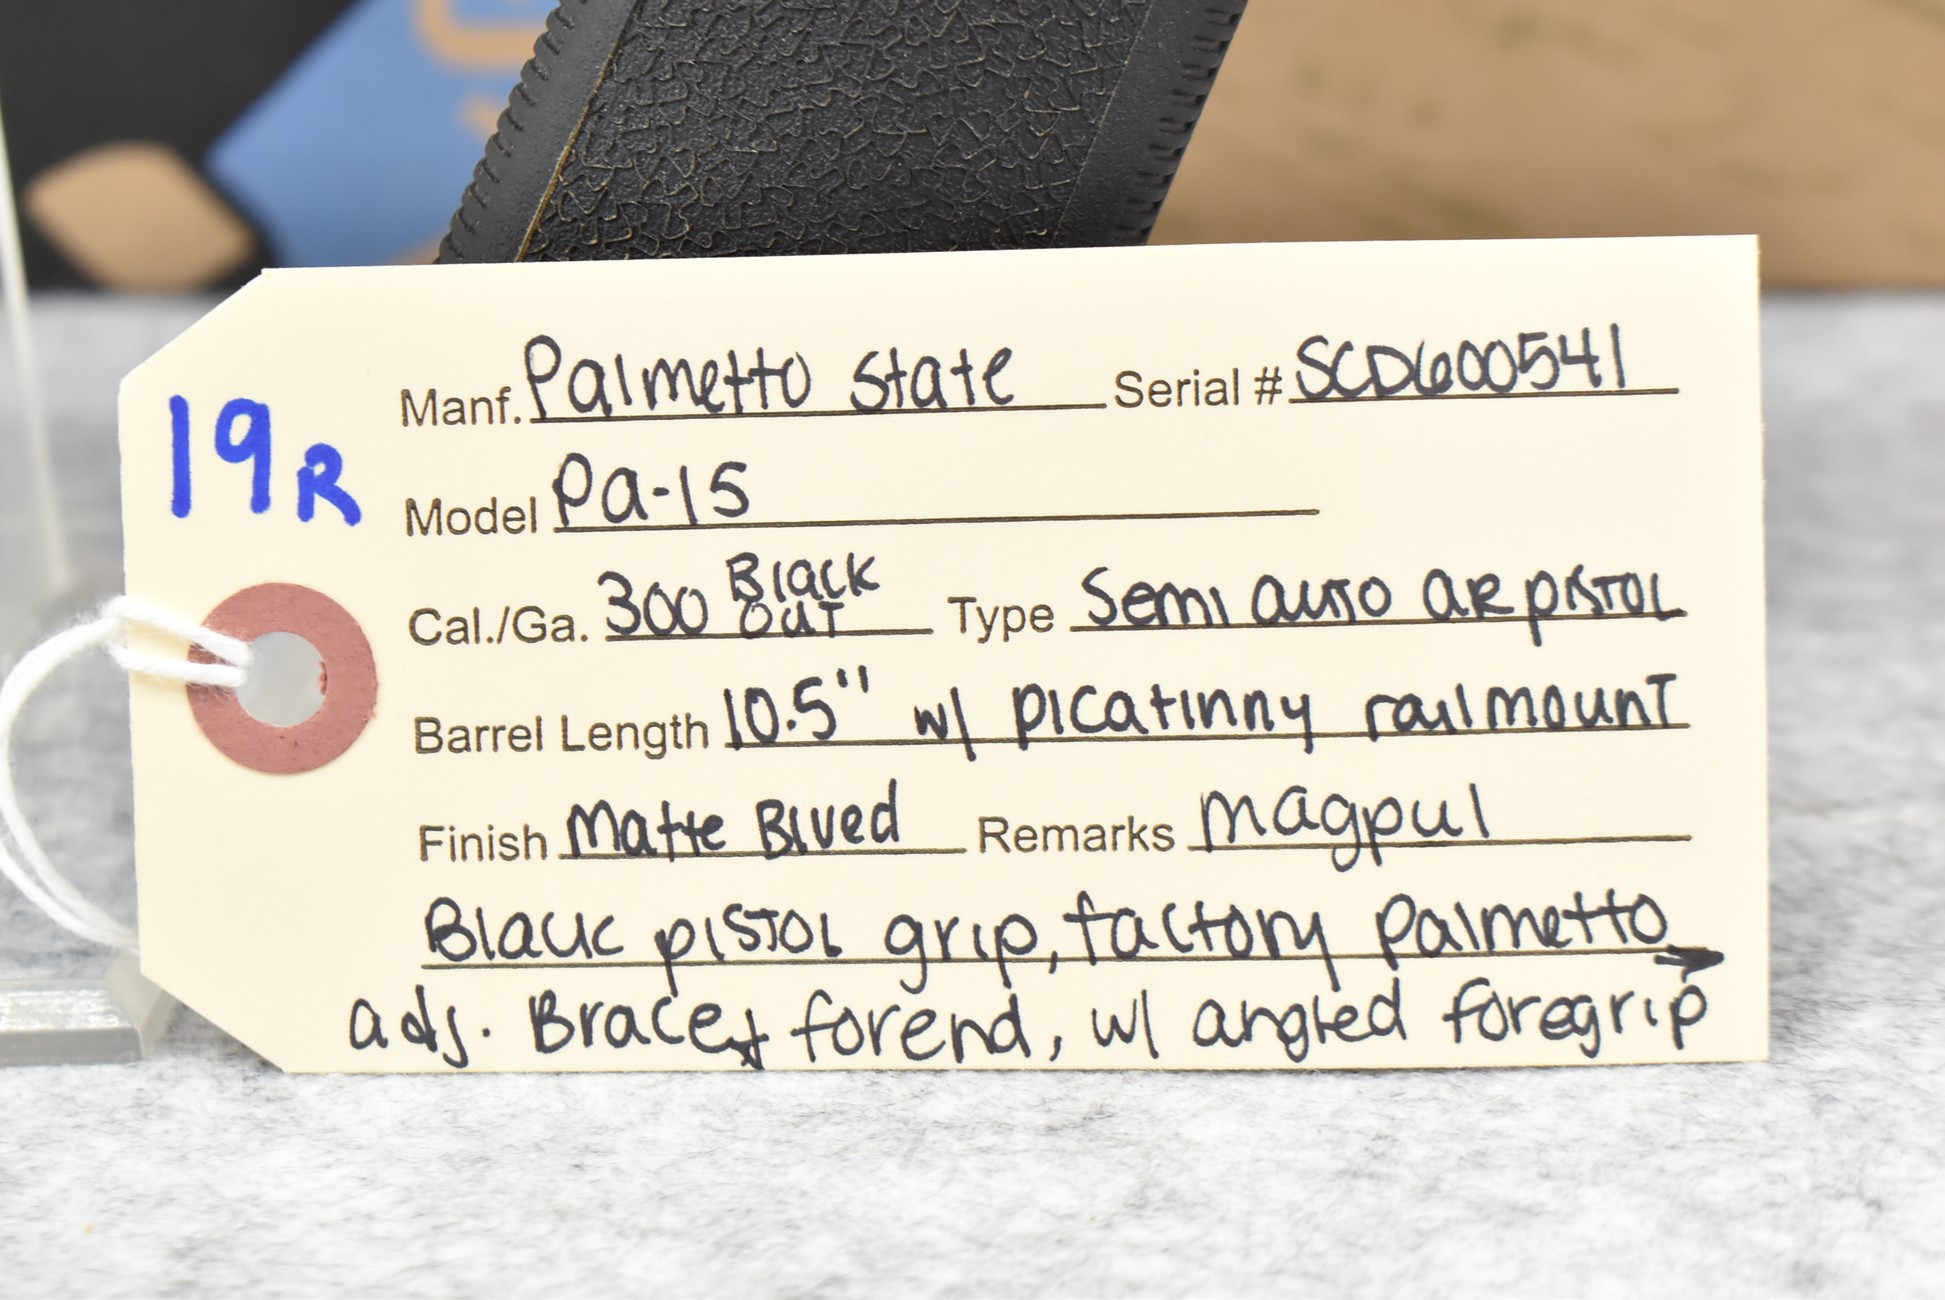 19R
Manf. Palmetto State Serial # SCD600541
Model Pa-15
Cal./Ga. 300 Black Out Type Semi auto AR pistol
Barrel Length 10.5" w/ picatinny rail mount
Finish Matte Blued Remarks Magpul
Black pistol grip, factory Palmetto →
adj. Brace + forend, w/ angled foregrip